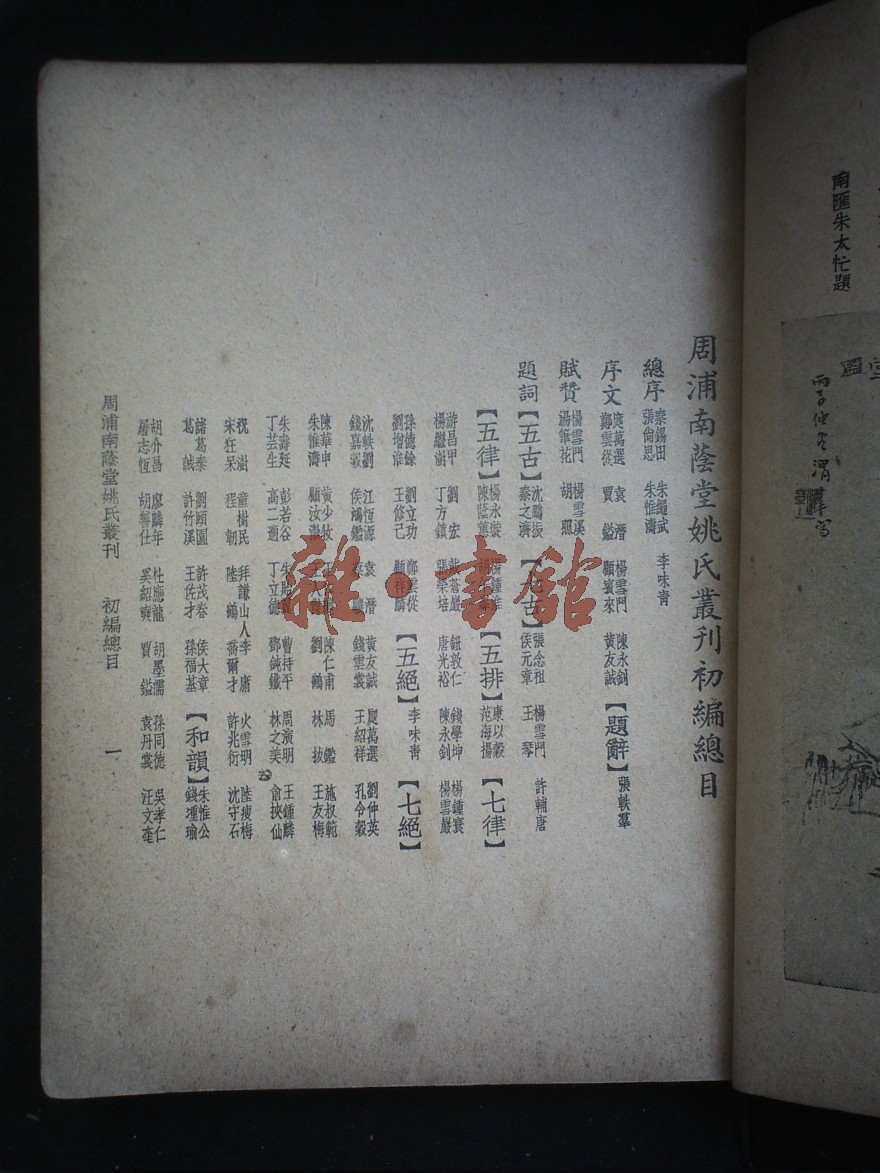 南匯朱太忙題
周浦南蔭堂姚氏叢刊初編總目
總序 秦錫田 張尙思 朱鳳武 朱惟濤 李味靑
序文 龎萬選 鄭雲從 袁潛 賈鎰 楊雪門 顧賓來 陳永釗 黃友誠 【題辭】 張軼羣
賦贊 楊雪門 湯筆花 楊雪溪 胡熙
題詞 【五古】 沈鵬振 秦之濟 【七古】 張念祖 侯元章 楊雪門 王琴 許輔唐
【五律】 楊永㻽 陳蔭蕙 楊鍾 【五排】 康以穀 范海揚 【七律】
游昌甲 楊繼樹 劉宏 丁方鎮 嚴蒼巖 張榮培 鈕敦仁 唐光裕 錢學坤 陳永釗 楊鍾寰 楊雪嚴
孫德餘 劉增淮 劉立功 王修己 鄭雲從 顧祥麟 【五絕】 李味靑 【七絕】
沈軼劉 錢嘉穀 江恆源 侯鴻鑑 袁潛 黃友誠 錢雲裳 龎萬選 王紹祥 劉仲英 孔令穀
陳華申 朱惟濤 黃少牧 顧汝 陳仁甫 劉鶴 馬鑑 林拔 施叔範 王友梅
朱壽延 丁芸生 彭若谷 高二適 丁立德 曹持平 鄧鈍鐵 周演明 林之美 王鍾麟 俞挾仙
祝澍 宋狂呆 童樹民 程朝 拜謙山人 陸鶴 李庸 喬爾才 火雪明 許兆衍 陸瘦梅 沈守石
諸葛泰 葛誠 劉頭園 許竹溪 許茂春 王佐才 侯大章 孫福基 【和韻】 朱惟公 錢壎瑜
胡介昌 屠志恆 廖麟年 胡彎仕 杜應龍 奚紹奭 胡墨儒 賈鎰 孫同德 袁丹裳 吳孝仁 汪文奎
周浦南蔭堂姚氏叢刊 初編總目 一
雜·書館